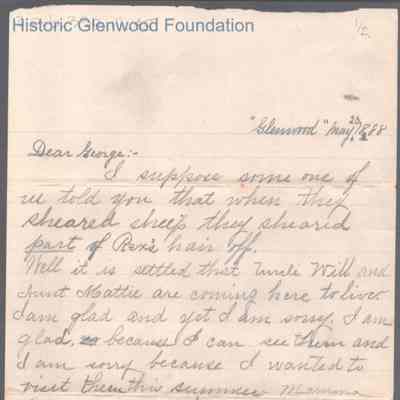 Historic Glenwood Foundation
1/2.
"Glenwood" May 23/1888
Dear George:-
I suppose some one of
us told you that when they
sheared sheep they sheared
part of Rex's hair off.
Well it is settled that Uncle Will and
Aunt Mattie are coming here to live.
I am glad and yet I am sorry. I am
glad, because I can see them and
I am sorry because I wanted to
visit them this summer. Mamma